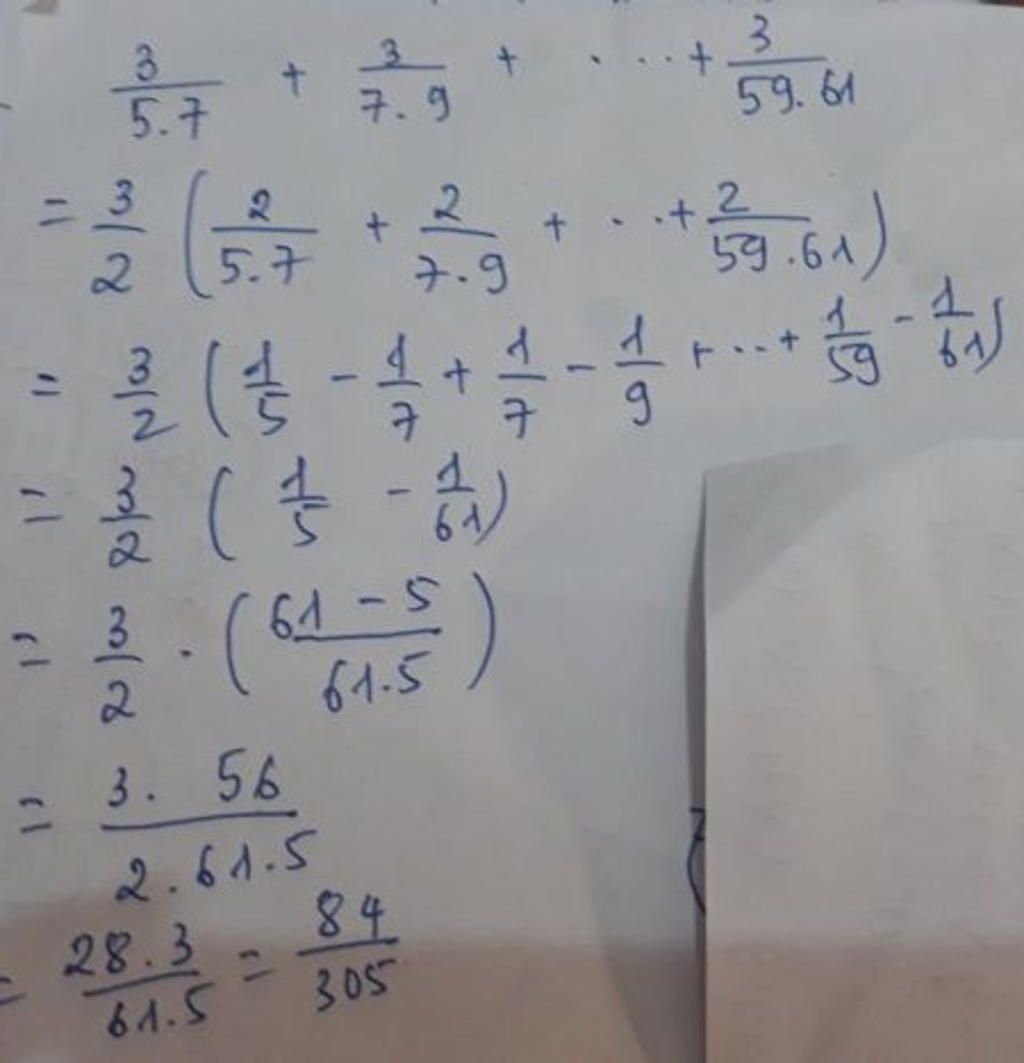 3/5.7 + 3/7.9 + . ...+ 3/59.61
= 3/2 (2/5.7 + 2/7.9 + ...+ 2/59.61)
= 3/2 (1/5 - 1/7 + 1/7 - 1/9 + ...+ 1/59 - 1/61)
= 3/2 (1/5 - 1/61)
= 3/2 . (61 - 5/61.5)
= 3. 56/2.61.5
= 28.3/61.5 = 84/305